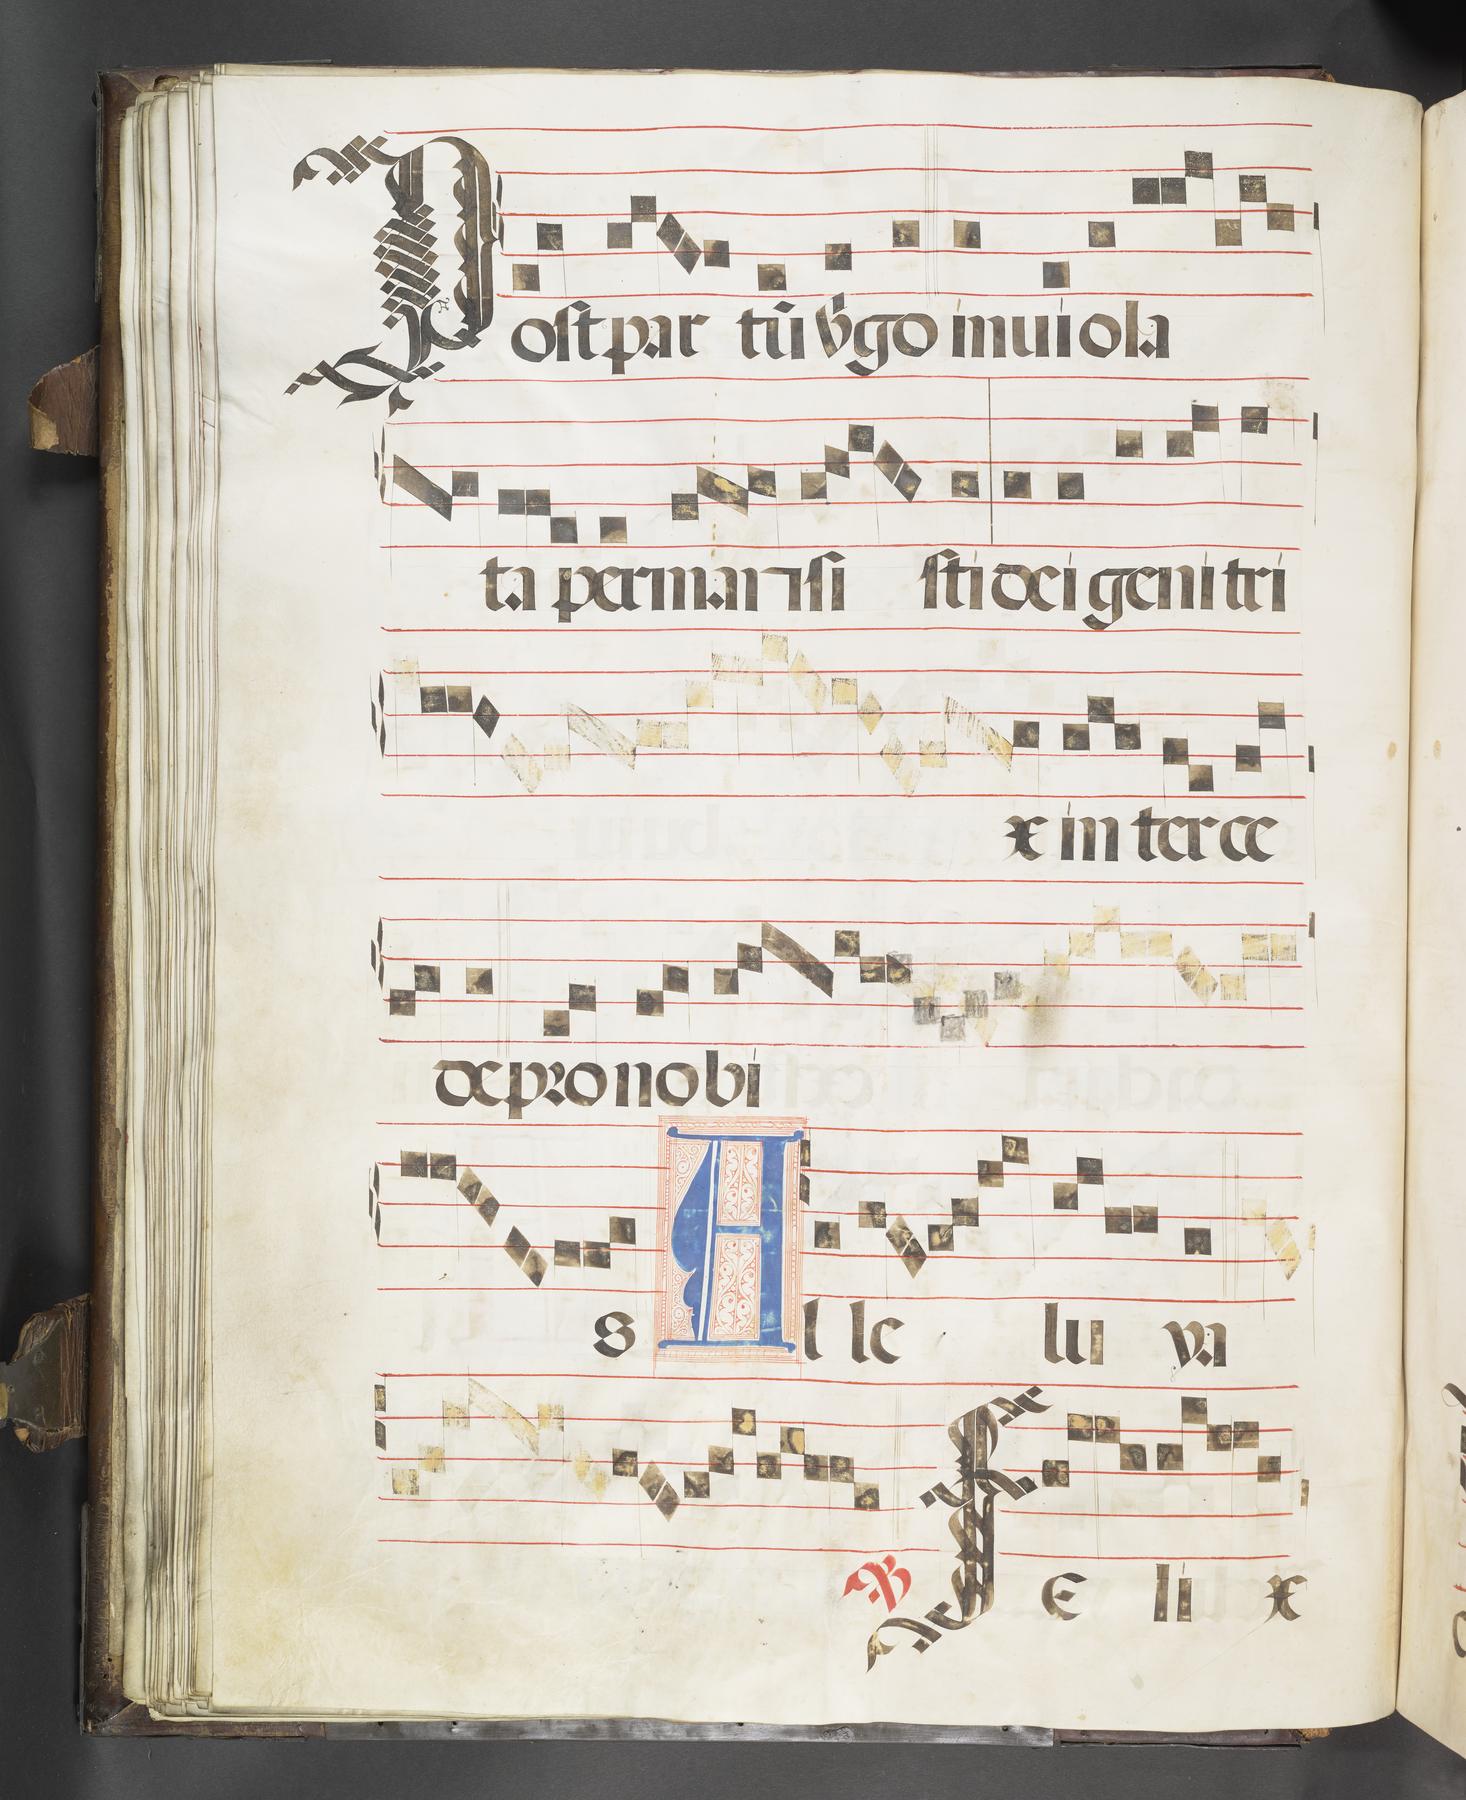 Post par tū v̄go inuiola
ta permansisi sti dei genitri
x in terce
de pro nobi
s Alle lu ya
℟ Fe li x